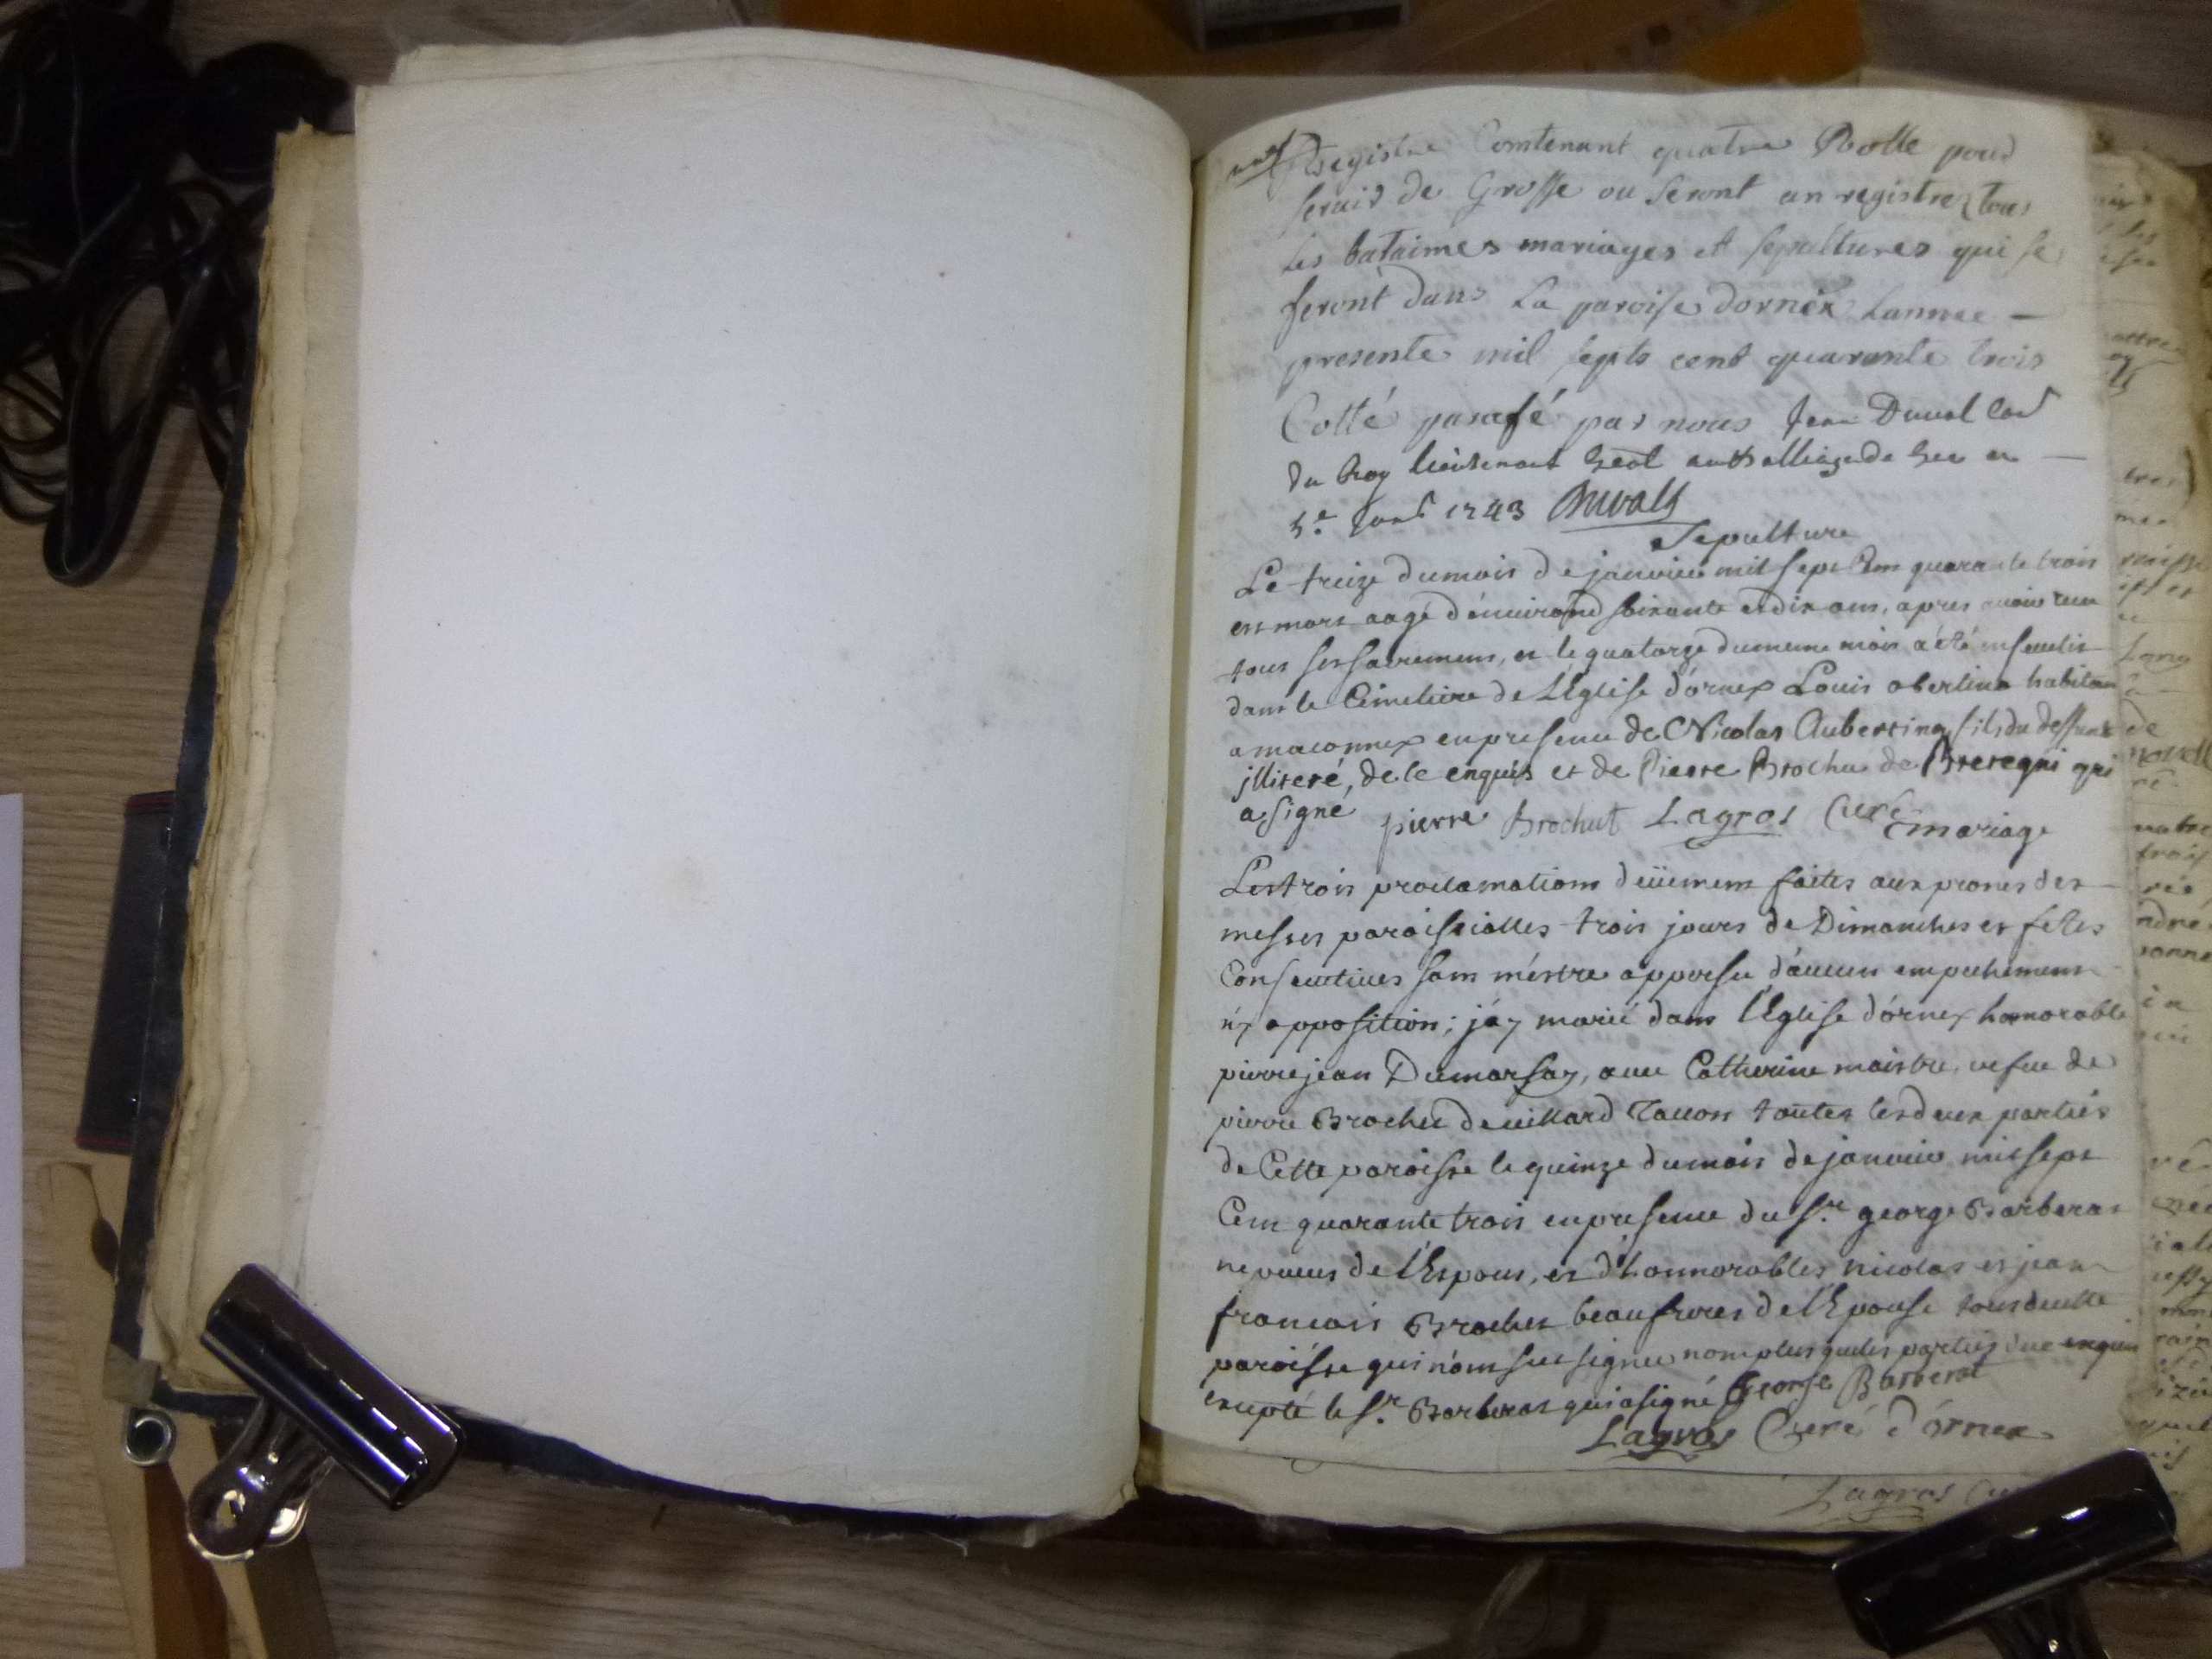 Registre Contenant quatre Rolle pour
servir de Grosse ou seront anregistrez tous
Les bataimes mariages et sepultures qui se
feront dans La paroise dornéx Lannee —
presente mil septs cent quarente trois
Cotté parafé par nous Jean Duval Con
du Roy lieutenant au Balliage de Gex ce —
5e Janr 1743 Duvals
Sepulture
Le treize du mois de janvier mil sept Cens quarante trois
est mort aagé d'environd soixante et dix ans, apres avoir reçu
tous ses sacremens, et le quatorze du meme mois a été ensevelis
dans le Cimetiere de L'Eglise d'órnex Louis obertino habitan
a maconnex en presence de Nicolas Aubertino fils du deffunt
jlliteré, de le enquis et de Pierre Brochu de Breregni qui
a signé pierre Brochut Lagros Curé
mariage
Les trois proclamations deüement faites aux prones des
messes paroissialles trois jours de Dimanches et fetes
Consecutives sans m'éstre apperssu d'aucun empechement
n'y opposition; j'ay marié dans l'Eglise d'órnex honorable
pierre jean Dumarsay, avec Catherine maistre, vefve de
pierre Brochu de villard Tacon toutes les deux parties
de Cette paroisse le quinze du mois de janvier mil sept
Cens quarante trois en presence du Sr. george Barberat
neveus de l'Espous, et d'honnorables nicolas et jean
francois Brochut beaufreres de l'Epouse tous de cette
paroisse qui n'ont sus signer nom plus que les parties de ce enquis
excepté le Sr. Barberat qui a signé George Barberat
Lagros Curé d'órnex
Lagros Cu